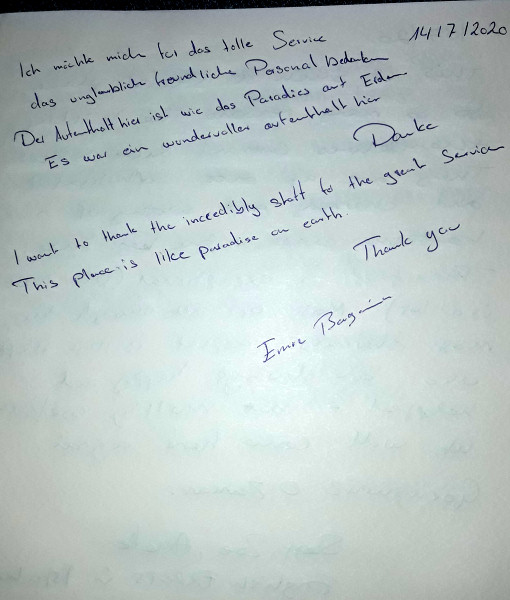 14/7/2020
Ich möchte mich für das tolle Service
das unglaublich freundliche Personal bedanken
Der Autenthalt hier ist wie das Paradies auf Erden
Es war ein wundervoller aufenthalt hier
Danke
I want to thank the incredibly staff for the great Service
This place is like paradise on earth.
Thank you
Emre